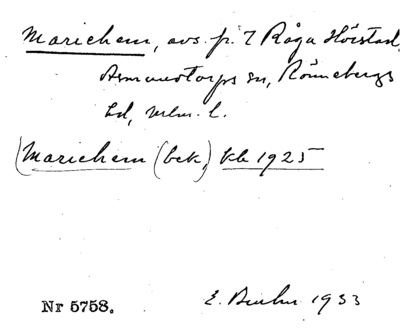 Mariehem, avs. fr. 7 Råga Hörstad,
Asmundtorps sn, Rönnebergs
hd, Mlm. l.
(Mariehem (bek.) kb 1925
Nr 5758. E. 1933